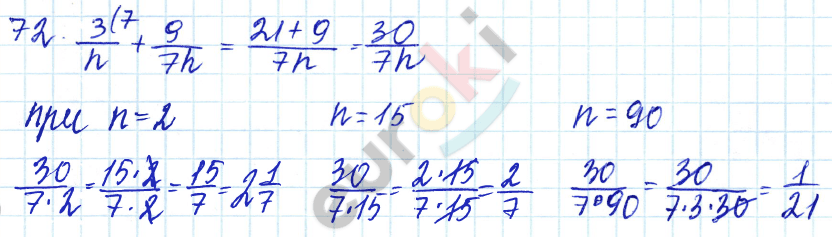 72. 3(7/n + 9/7n = 21+9/7n = 30/7n
при n=2 n=15 n=90
30/7·2 = 15·2/7·2 = 15/7 = 2 1/7 30/7·15 = 2·15/7·15 = 2/7 30/7·90 = 30/7·3·30 = 1/21
euroki